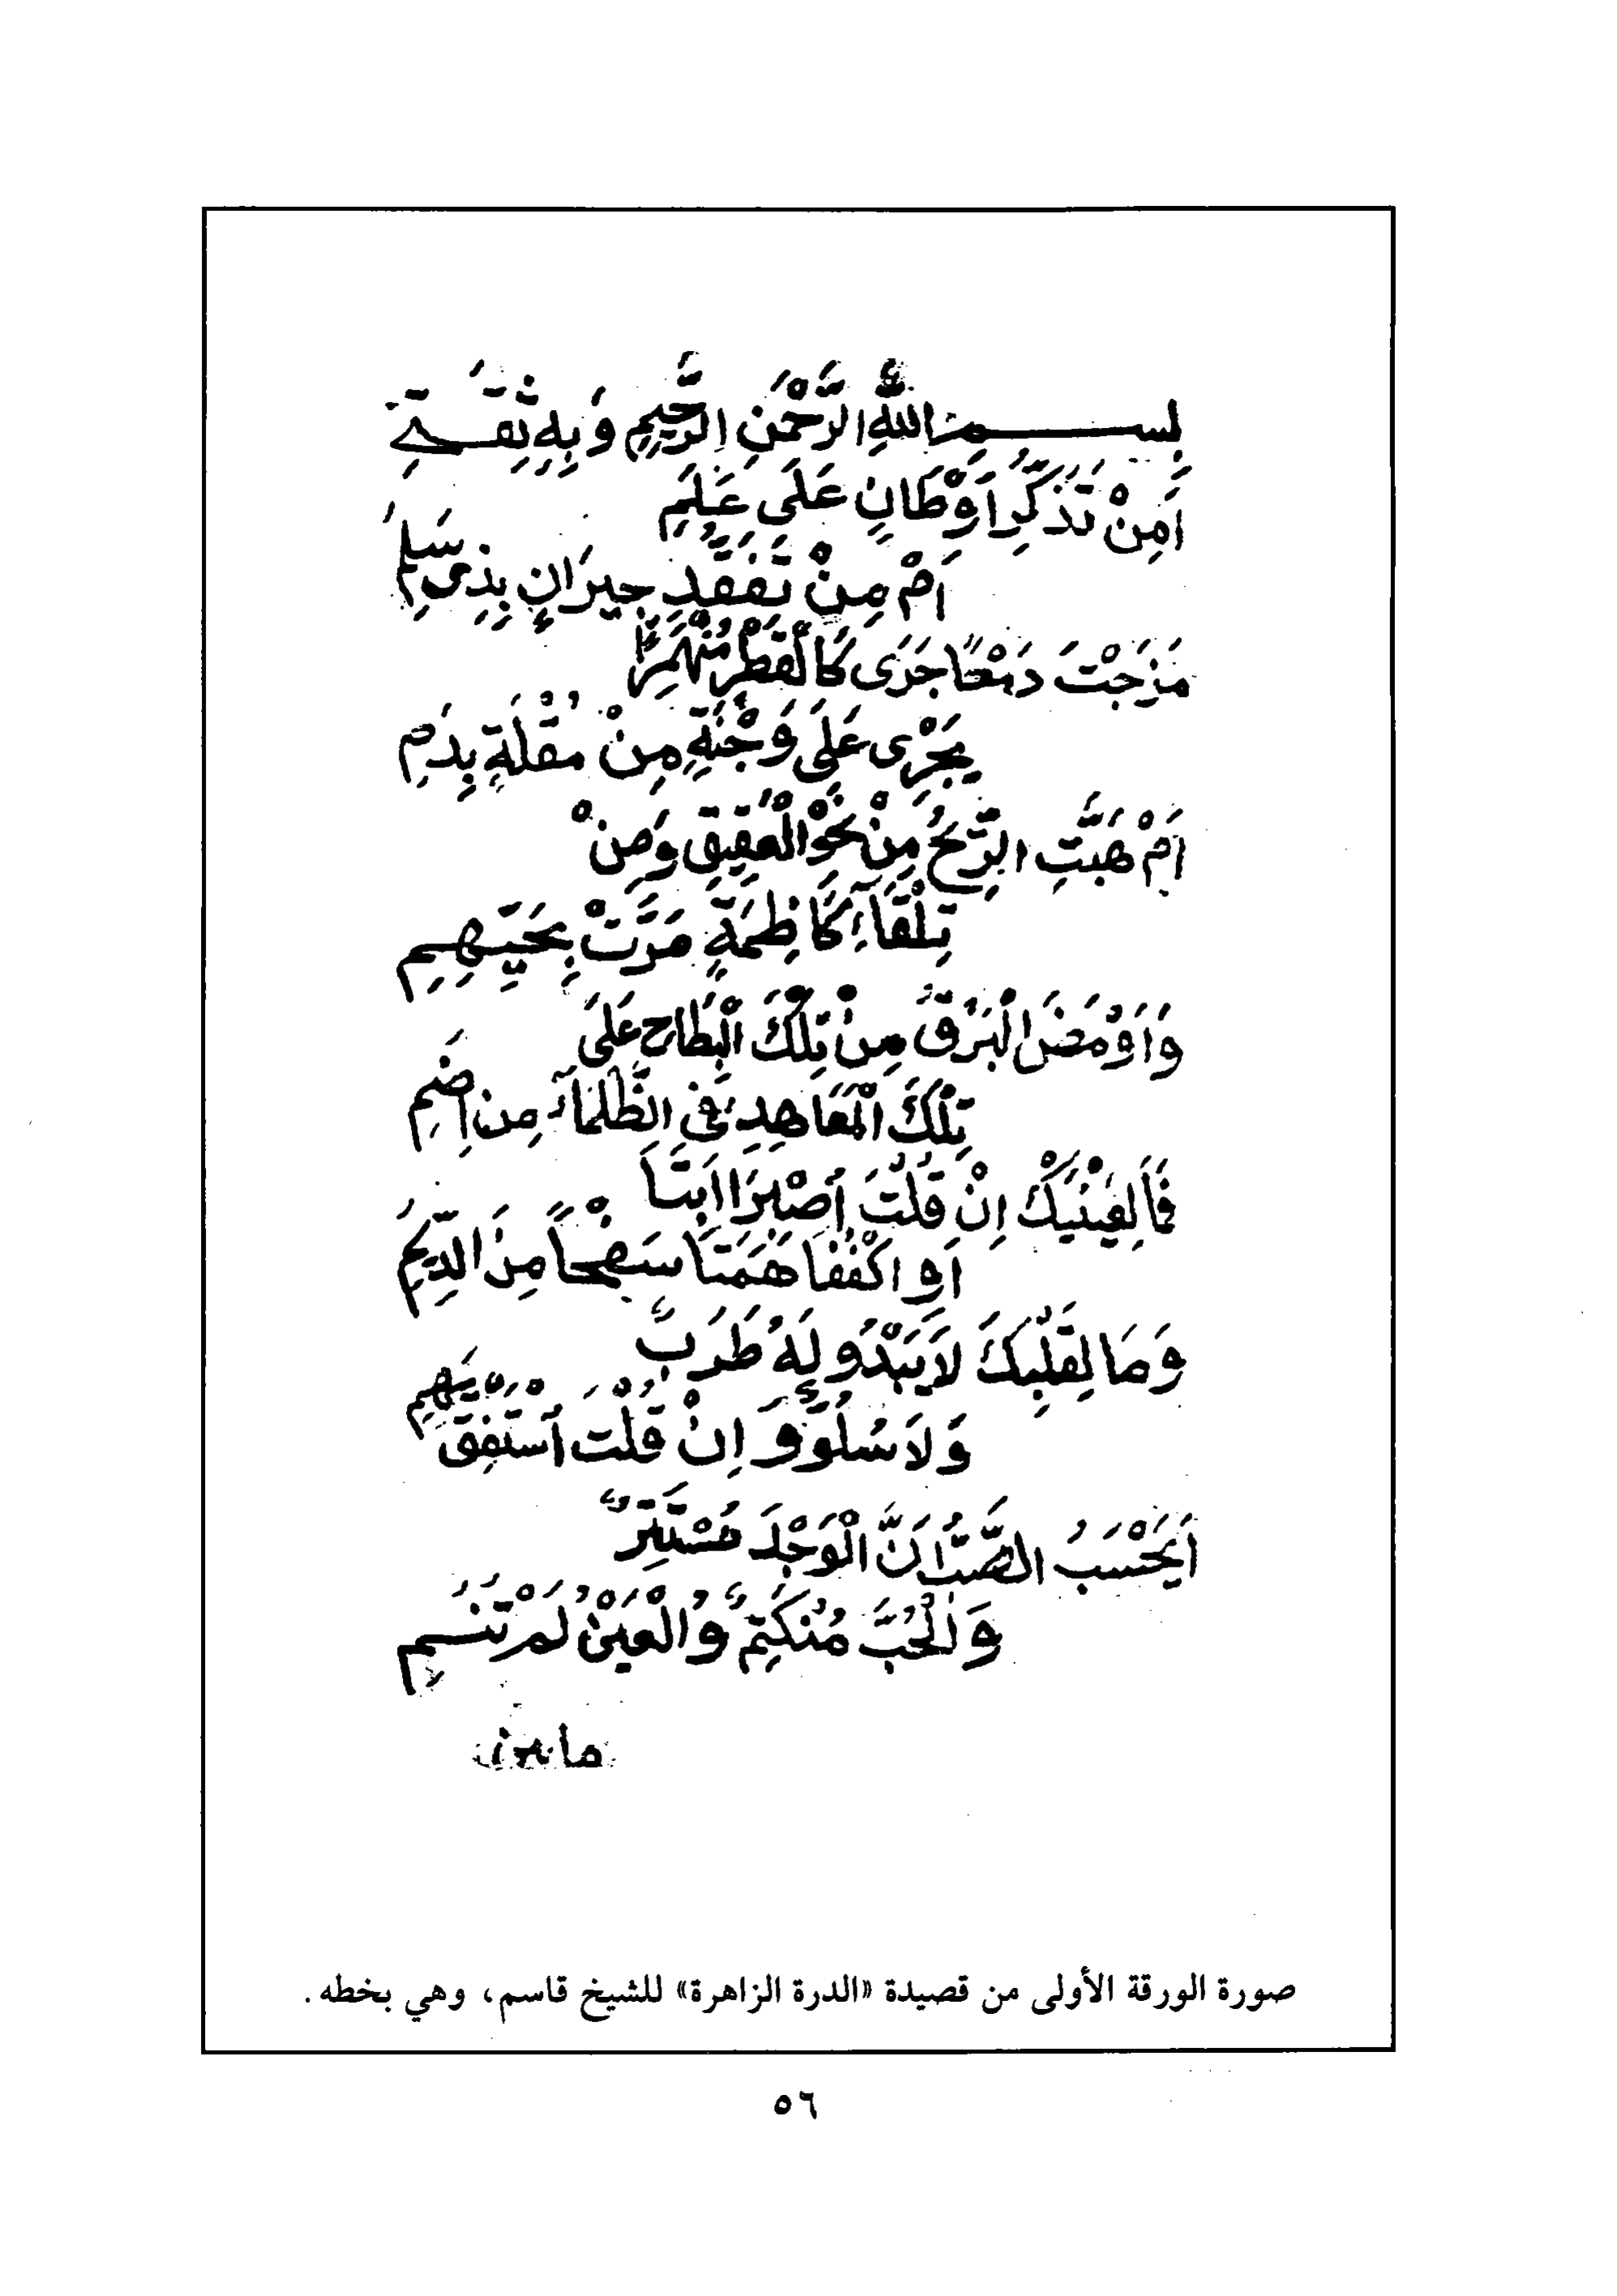 بِسْمِ اللَّهِ الرَّحْمٰنِ الرَّحِيمِ وَبِهِ ثِقَتِي
أَمِنْ تَذَكُّرِ أَوْطَانٍ عَلَى عَلَمِ
أَمْ مِنْ تَفَقُّدِ جِيرَانٍ بِذِي سَلَمِ
مَزَجْتَ دَمْعًا جَرَى كَالْقَطْرِ مُنْهَمِرًا
يَجْرِي عَلَى وَجْنَةٍ مِنْ مُقْلَةٍ بِدَمِ
أَمْ هَبَّتِ الرِّيحُ مِنْ نَحْوِ الْعَقِيقِ وَمِنْ
تِلْقَاءِ كَاظِمَةٍ مَرَّتْ بِحَيِّهِمِ
وَأَوْمَضَ الْبَرْقُ مِنْ تِلْكَ الْبِطَاحِ عَلَى
تِلْكَ الْمَعَاهِدِ فِي الظَّلْمَاءِ مِنْ إِضَمِ
فَمَا لِعَيْنَيْكَ إِنْ قُلْتَ اصْبِرَا أَبَتَا
أَوِ اكْفُفَا هَمَتَا سَفْحًا مِنَ الدِّيَمِ
وَمَا لِقَلْبِكَ لَا يَبْدُو لَهُ طَرَبٌ
وَلَا سُلُوٌّ وَإِنْ قُلْتَ اسْتَفِقْ يَهِمِ
أَيَحْسَبُ الصَّبُّ أَنَّ الْوَجْدَ مُسْتَتِرٌ
وَالْحُبَّ مُنْكَتِمٌ وَالْعَيْنُ لَمْ تَنَمِ
ما بين
صورة الورقة الأولى من قصيدة «الدرة الزاهرة» للشيخ قاسم، وهي بخطه.
٥٦